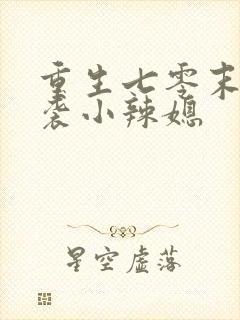 重生七零末
袭小辣媳
星空虚落